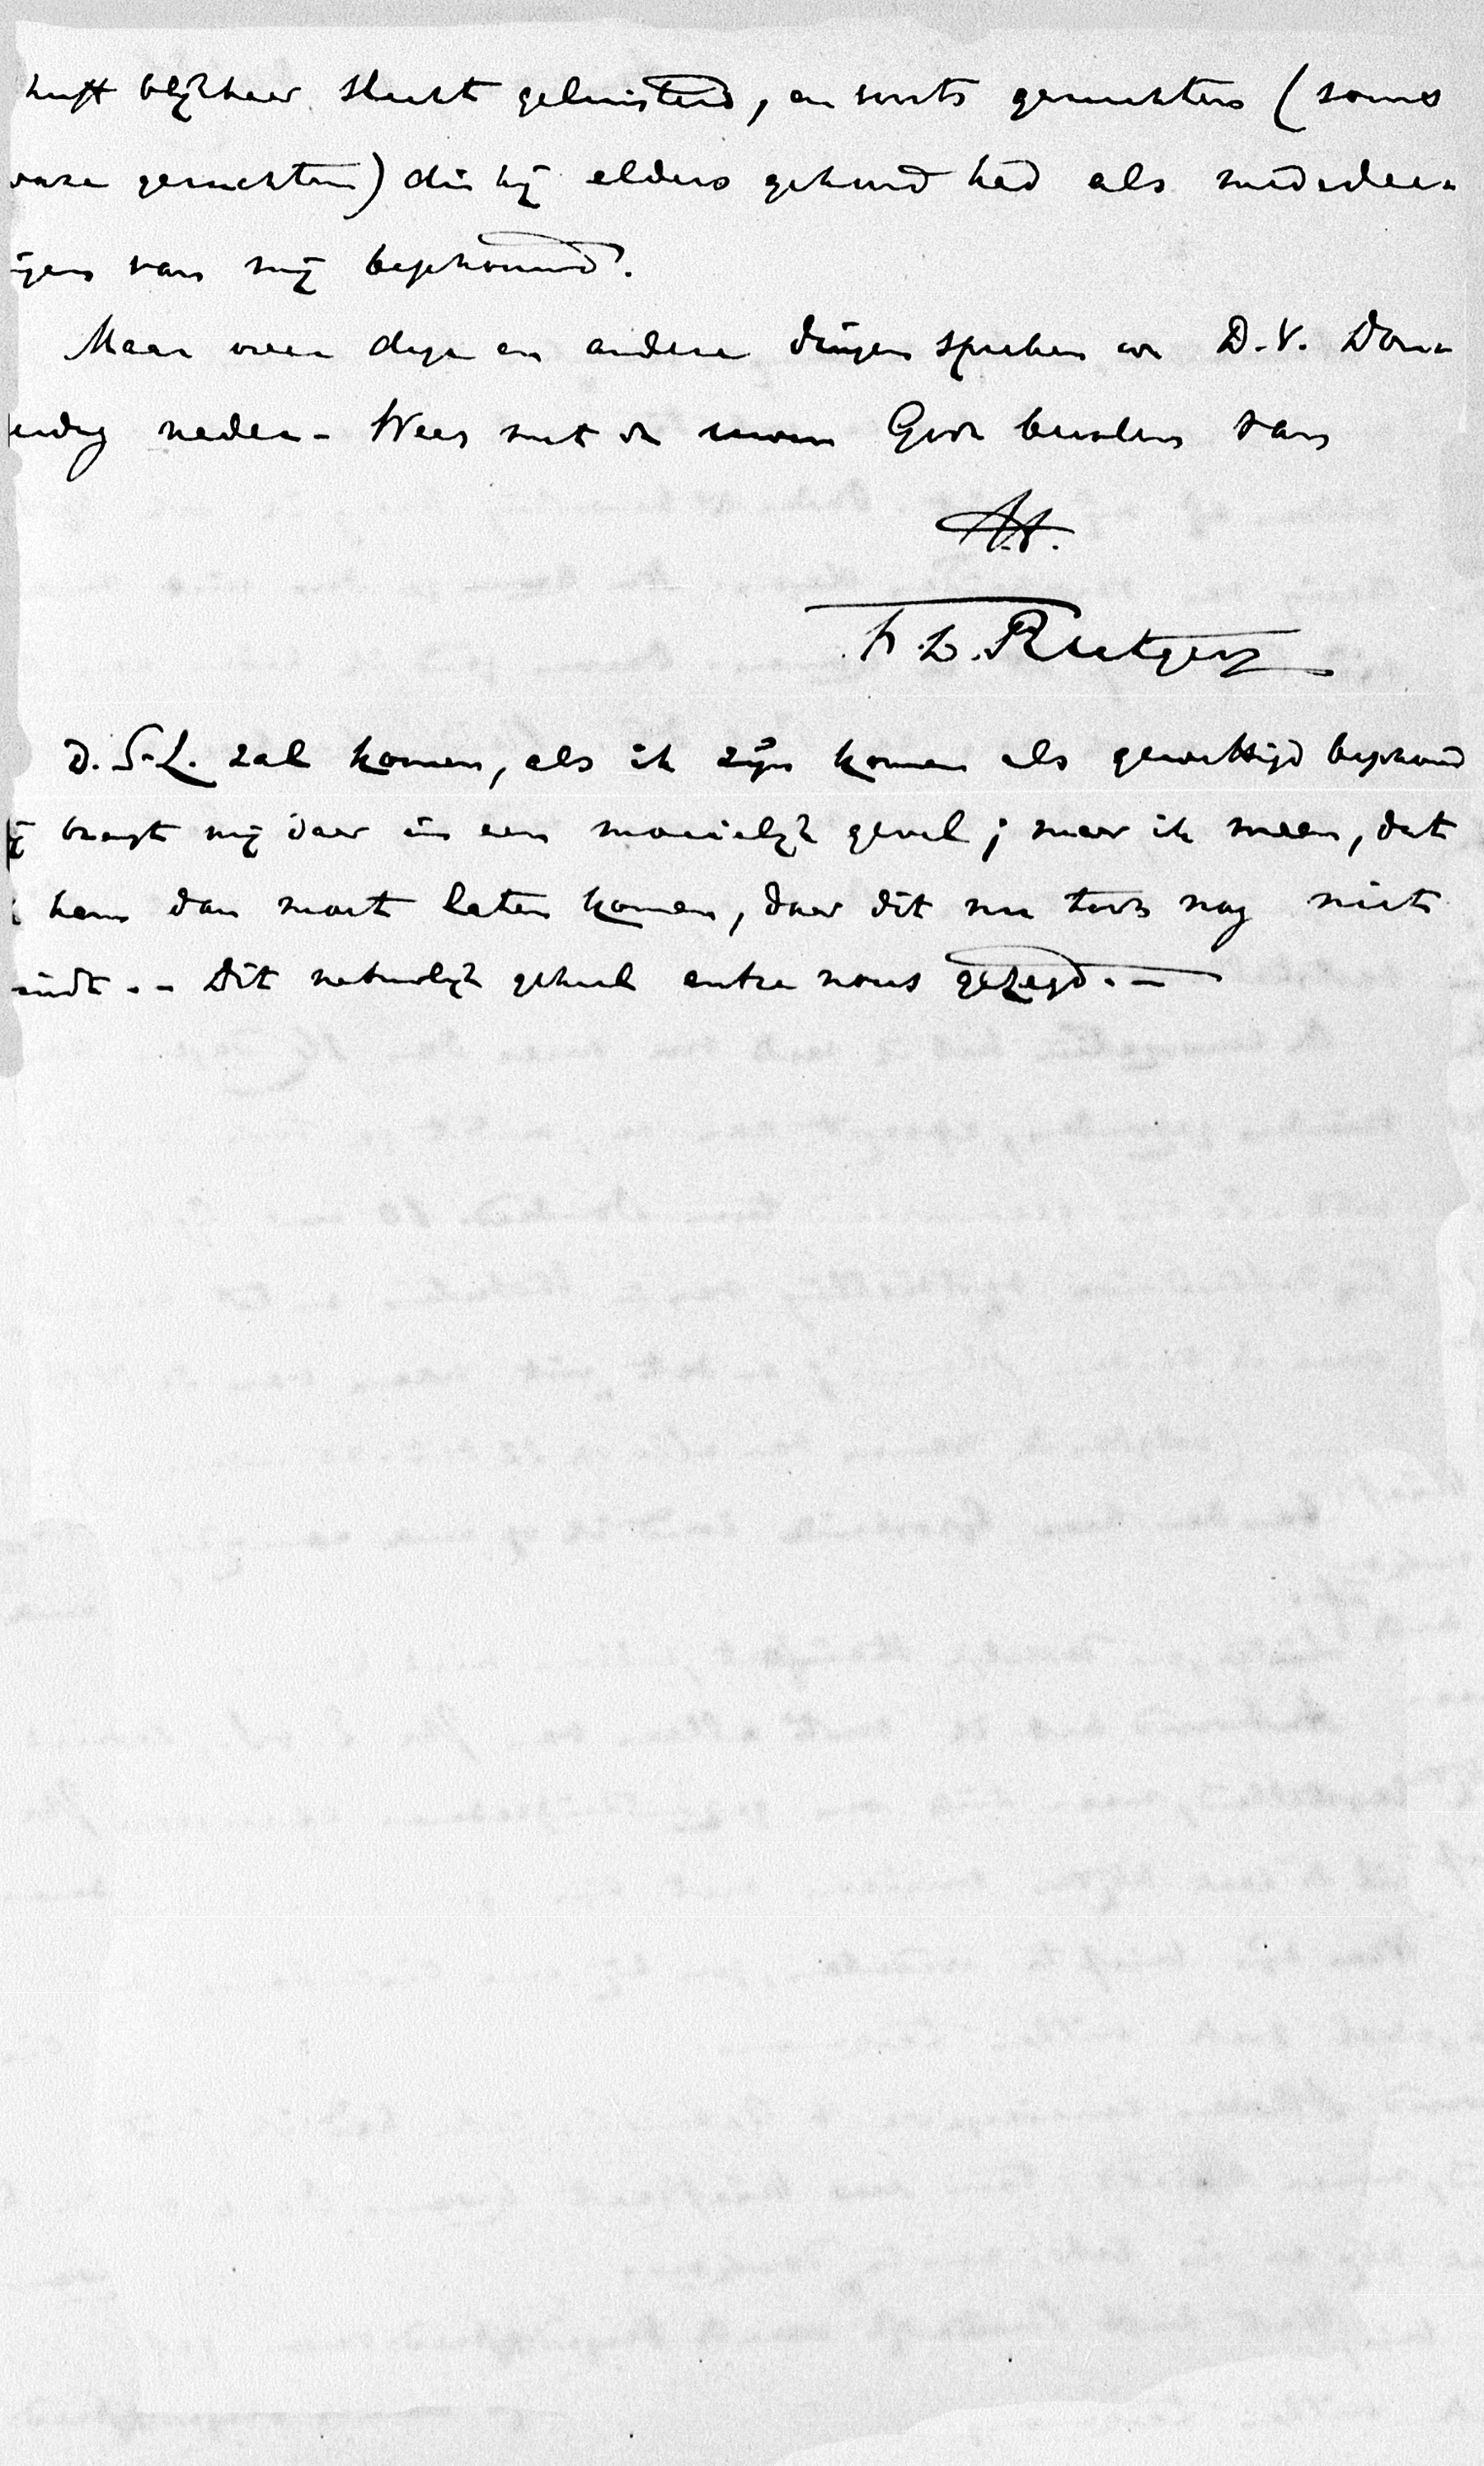 heeft blijkbaar slecht geluisterd, en soorts geruchten (soms
vaze geruchten) die hij elders gehoord had als mededee-
ingen van mij beschouwd.
Maar over deze en andere dingen spreken we D.V. Don-
erdag nader. Wees met de uwen Gode bevolen van
tt.
F. L. Rutgers
D. S.-L. zal komen, als ik zijn komen als gewettigd beschouw
ij brengt mij daar in een moeielijk geval; maar ik meen, dat
k hem dan moet laten komen, daar dit nu toch nog niets
indt. - Dit natuurlijk geheel entre nous gezegd. -